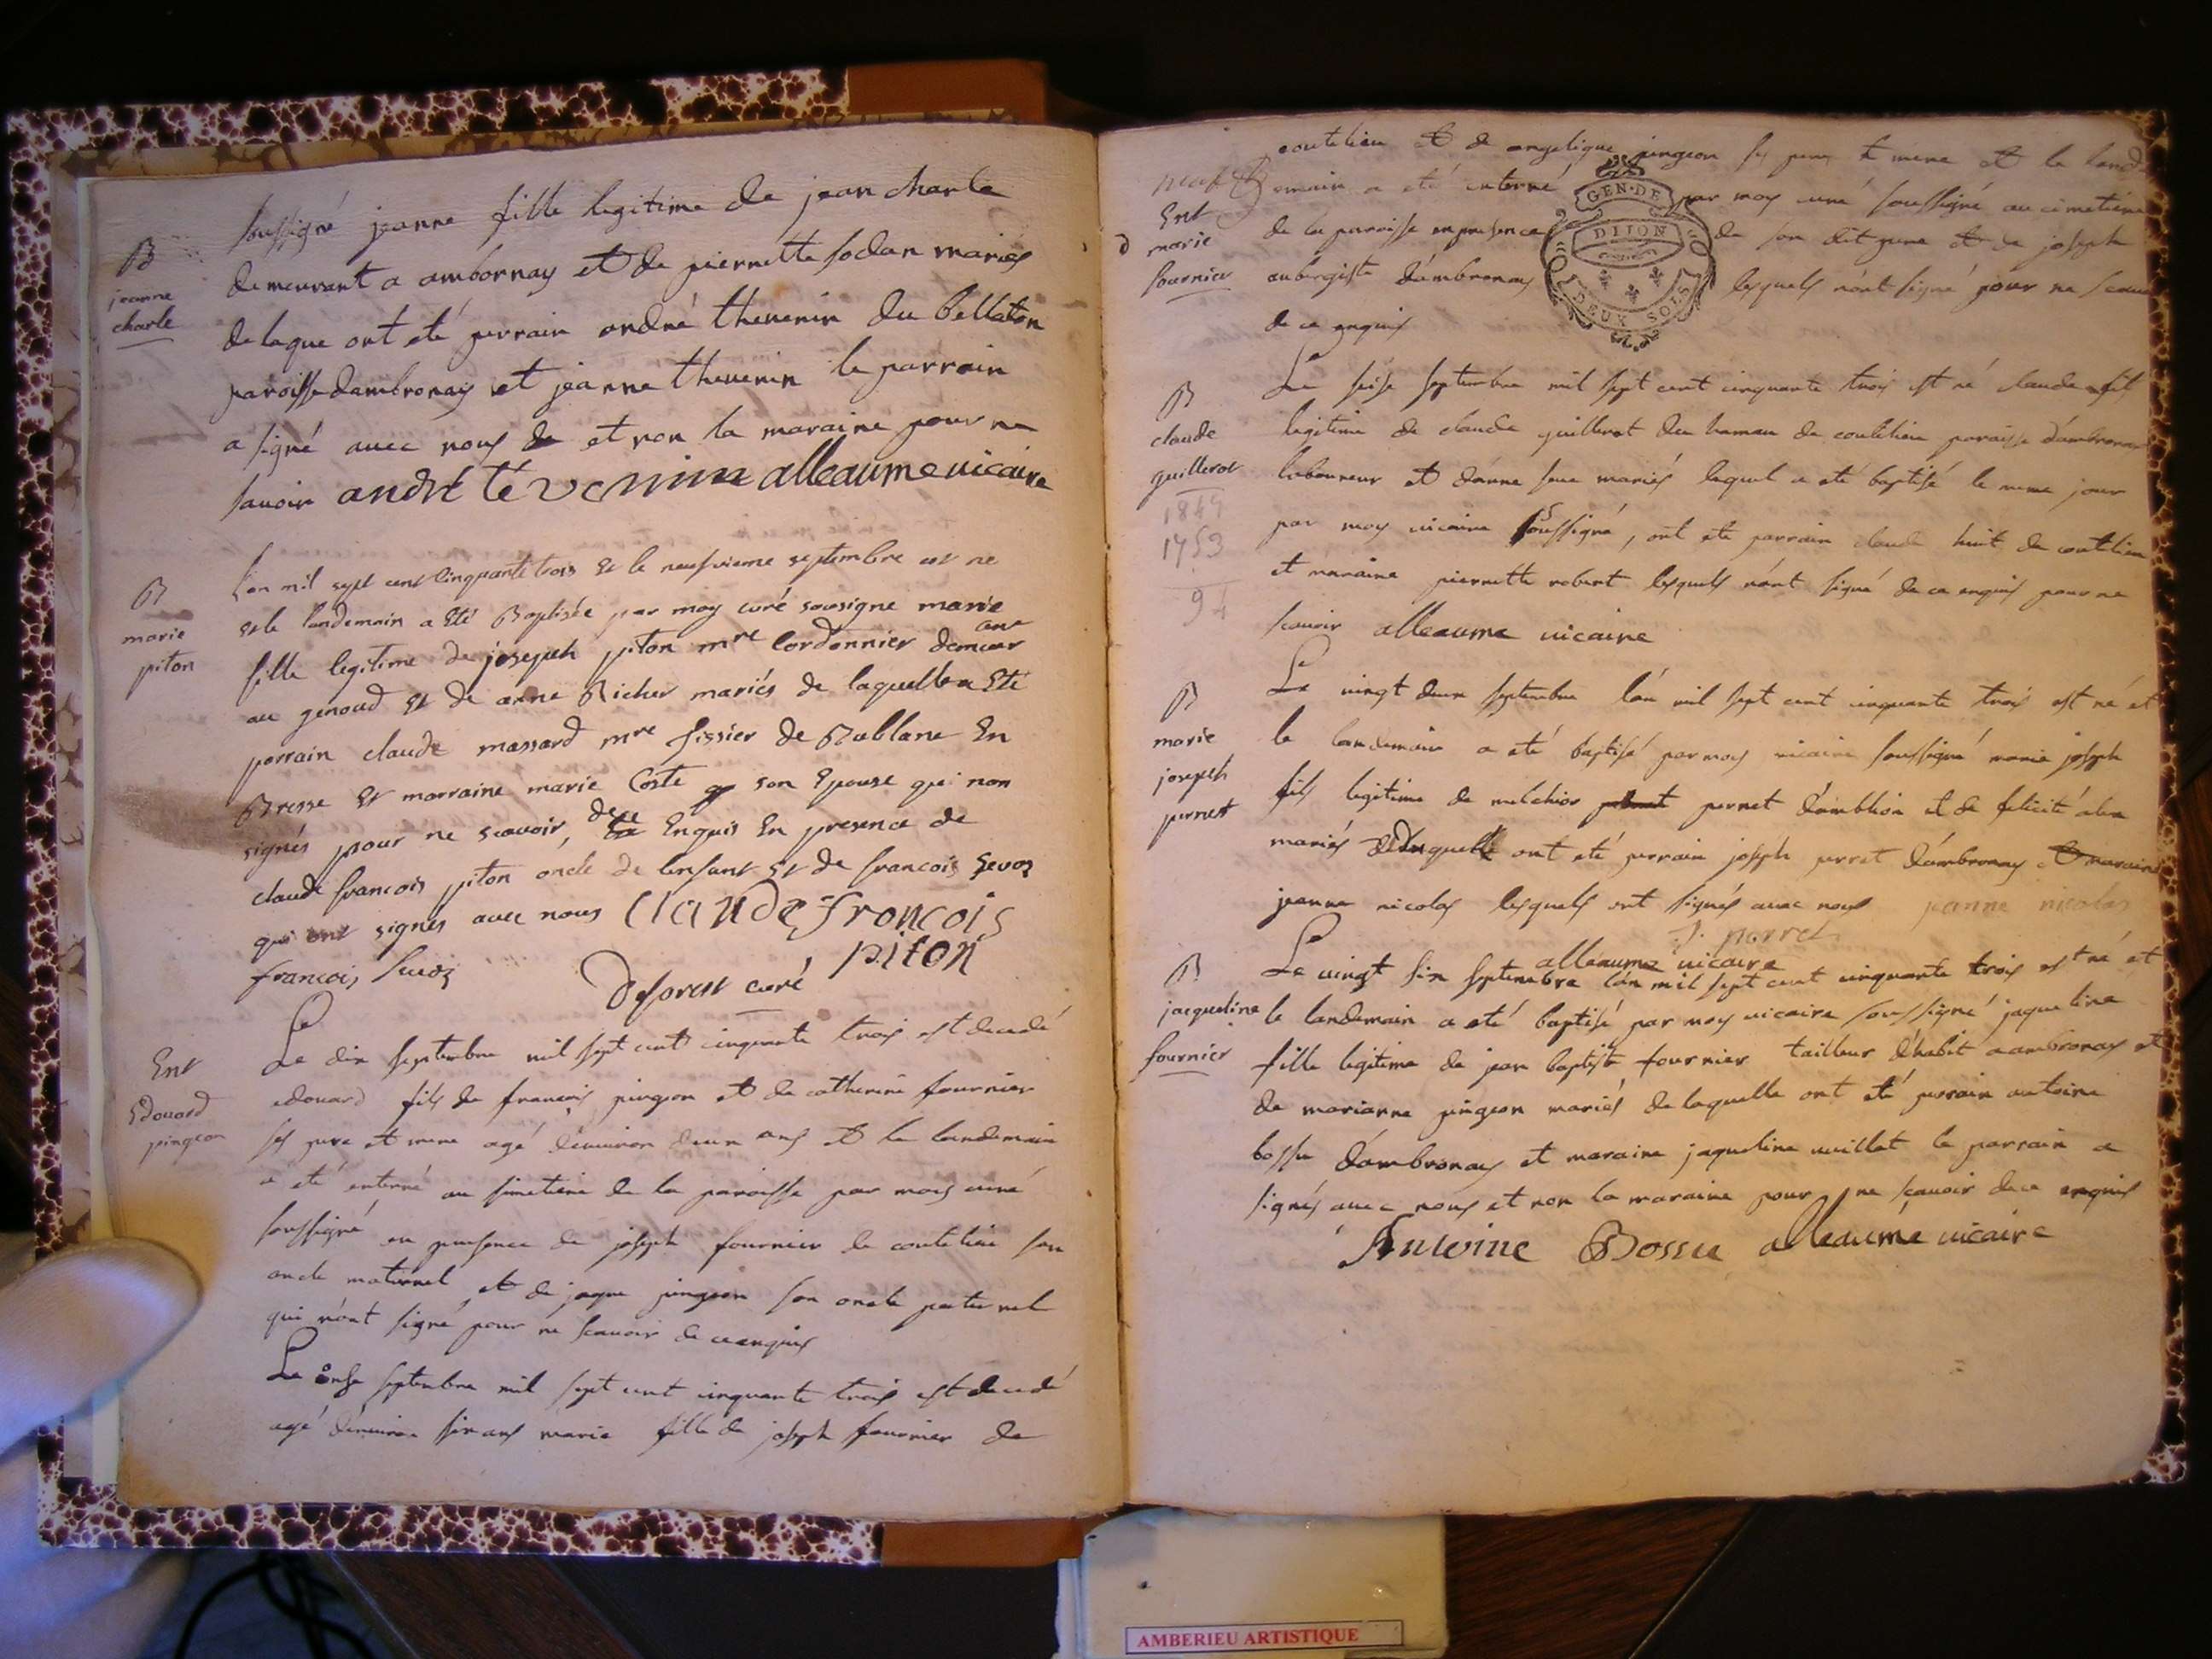 soussigné jeanne fille legitime de jean charle
B
jeanne
charle
demeurant a ambornay et de pierrette sodan mariés
de laque ont eté perrain andré thevenin du bellaton
paroisse dambronay et jeanne thevenin le parrain
a signé avec nous et non la maraine pour ne
savoir andré tévenin alleaume vicaire
B
marie
piton
Lan mil sept cent cinquante trois et le neufvieme septembre est ne
et le landemain a Eté Baptisée par moy curé sousigne marie
fille legitime de joseph piton mre Cordonnier demeur
ant
au genoud et de anne Richer mariés de laquelle a Eté
parrain claude massard mre tissier de Rablane En
Bresse Et marraine marie Coste son Epouse qui non
signés pour ne scavoir, de ce Enquis En presence de
claude francois piton oncle de lenfant et de francois sevoz
qui ont signés avec nous Claude francois
piton
francois sevoz
Deforest curé
Ent
Edouard
pingeon
Le dix septembre mil sept cent cinquante trois est decedé
edouard fils de francois pingeon et de catherine fournier
ses pere et mere agé d'environ deux ans et le landemain
a eté enterré au simetiere de la paroisse par moy curé
soussigné en presence de joseph fournier de coutelieu son
oncle maternel et de jaque pingeon son oncle paternel
qui n'ont signé pour ne scavoir de ce enquis
Le onse septembre mil sept cent cinquante trois est decedé
agé d'environ six ans marie fille de joseph fournier de
coutelieu et de angelique pingeon ses pere et mere et le land
Ent
marie
fournier
emain a eté enterré par moy curé soussigné au cimetiere
de la paroisse en presence de son dit pere et de joseph
aubergiste d'ambronay lesquels n'ont signé pour ne scavoir
de ce enquis
GEN·DE
DIJON
DEUX SOLS
B
claude
guillerot
1849
1753
94
Le seise septembre mil sept cent cinquante trois est né claude fils
legitime de claude guillerot du hameau de coutelieu paroisse d'ambronay
laboureur et d'anne mariés lequel a eté baptisé le meme jour
par moy vicaire soussigné, ont eté parrain claude huit de coutelieu
et maraine pierrette robert lesquels n'ont signé de ce enquis pour ne
scavoir alleaume vicaire
B
marie
joseph
pernet
Le vingt deux septembre l'an mil sept cent cinquante trois est né et
le landemain a eté baptisé par moy vicaire soussigné marie joseph
fils legitime de melchior pernet d'amblion et de felicité
mariés duquel ont eté perrain joseph perret d'ambronay et maraine
jeanne nicolas lesquels ont signés avec nous jeanne nicolas
J. perret
alleaume vicaire
B
jacqueline
fournier
Le vingt six septembre l'an mil sept cent cinquante trois est né et
le landemain a eté baptisé par moy vicaire soussigné jaqueline
fille legitime de jean baptiste fournier tailleur d'habit a ambronay et
de marianne pingeon mariés de laquelle ont eté perrain antoine
bossu d'ambronay et maraine jaqueline vuillet le parrain a
signés avec nous et non la maraine pour ne sçavoir de ce enquis
Antoine Bossu alleaume vicaire
AMBERIEU ARTISTIQUE